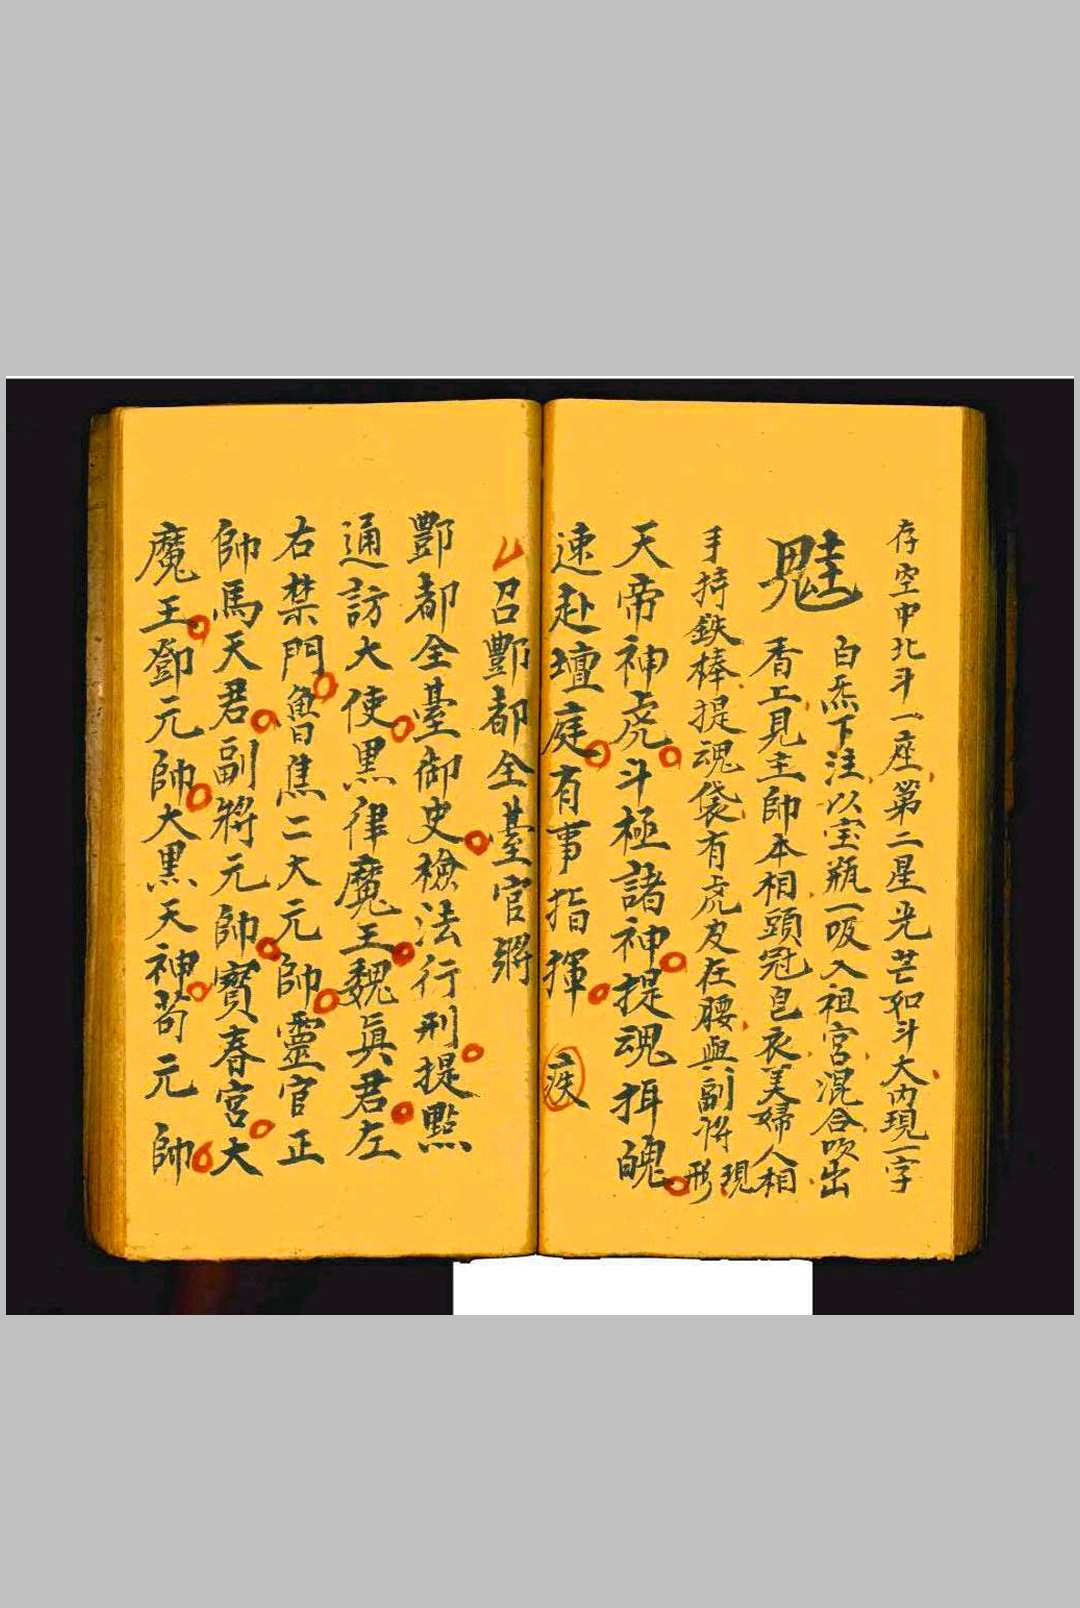 存空中北斗一座第二星光芒如斗大內現一字
魁
白炁下注以宝瓶一吸入祖宮混合吹出
香上見主帥本相頭冠皂衣美婦人相
手持鉄棒提魂袋有虎皮在腰與副将現形
天帝神虎斗極諸神提魂捐魄
速赴壇庭有事指揮 疾
召酆都全臺官將
酆都全臺御史檢法行刑提點
通訪大使黑律魔王魏眞君左
右禁門魯焦二大元帥靈官正
帥馬天君副將元帥寳春宮大
魔王鄧元帥大黒天神苟元帥